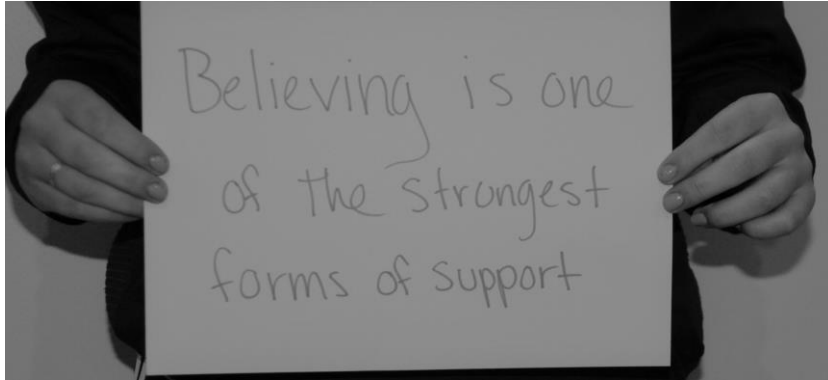 Believing is one
of the strongest
forms of support